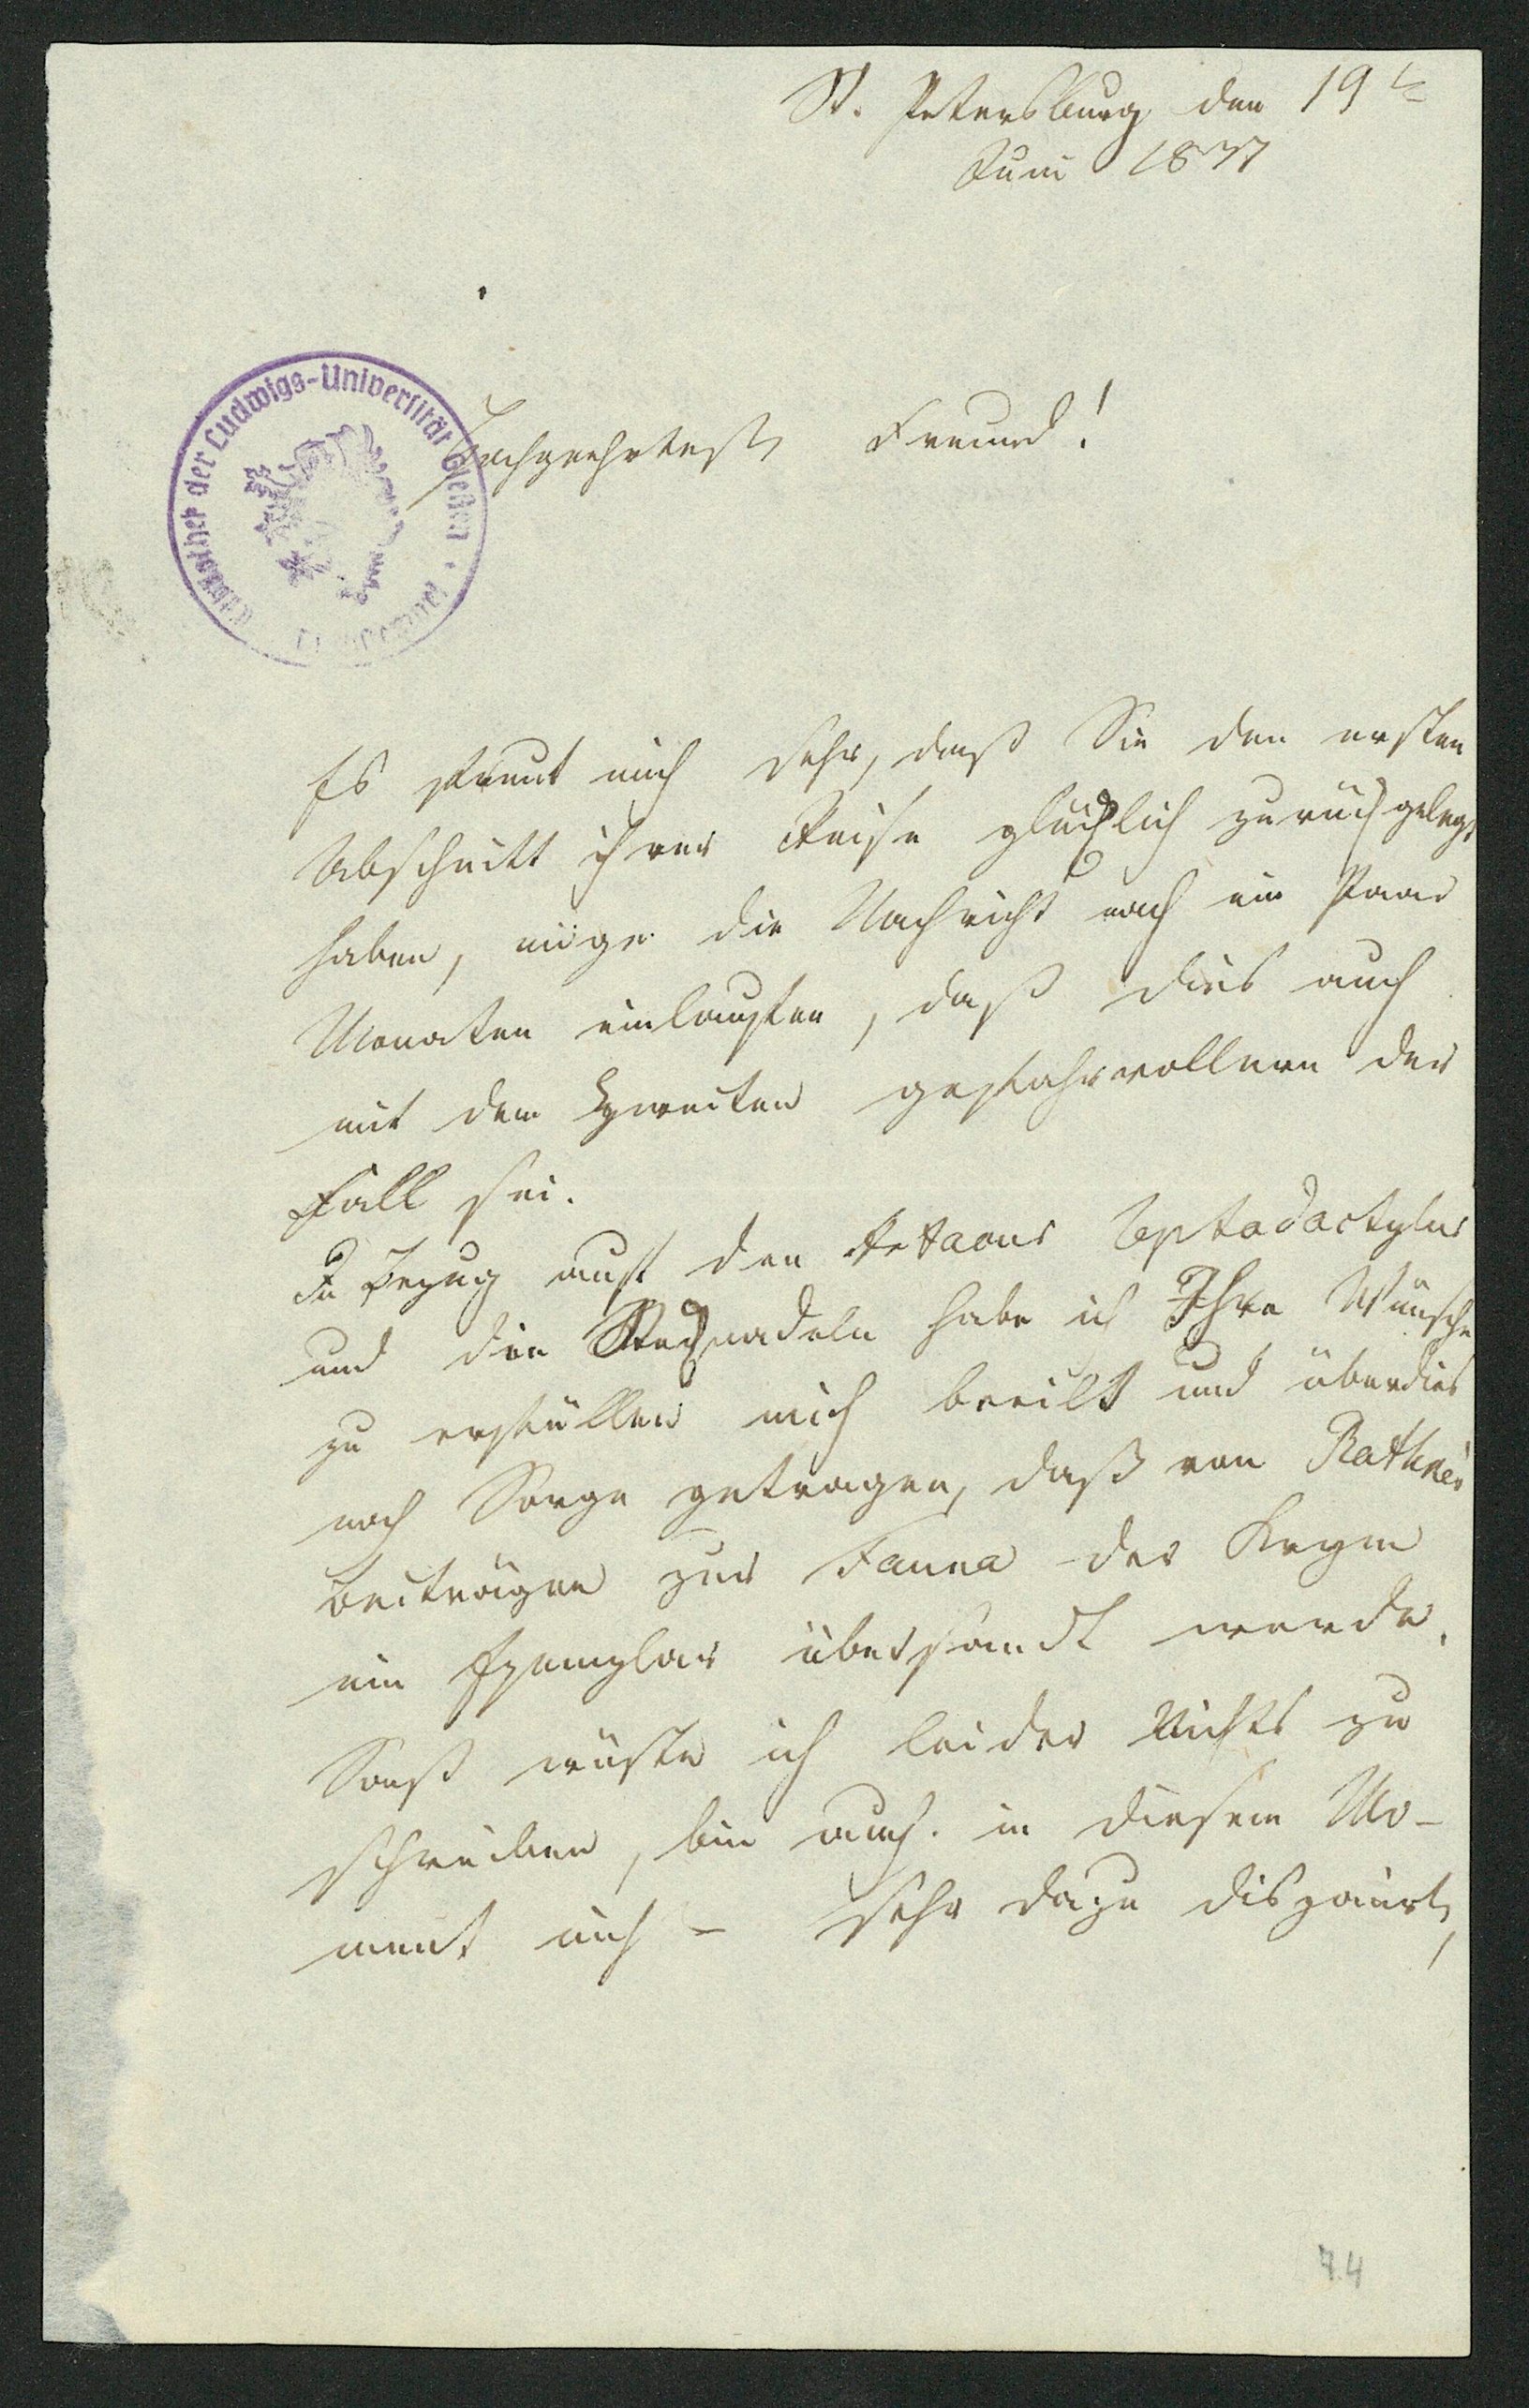 St. Petersburg den 19t
Juni 1837
Bibliothek der Ludwigs-Universität Gießen
Hochgeehrtester Freund!
Es freut mich sehr, daß Sie den ersten
Abschnitt ihrer Reise glücklich zurückgelegt
haben, möge die Nachricht nach ein Paar
Monaten einlaufen, daß dies auch
mit dem Zweiten gefahrvollern der
Fall sei.
In Bezug auf den Astacus leptodactylus
und die Stecknadeln habe ich Ihre Wünsche
zu erfüllen mich beeilt und überdies
noch Sorge getragen, daß von Rathke's
Beiträgen zur Fauna der Krym
ein Exemplar übersandt werde.
Sonst wüßte ich leider Nichts zu
schreiben, bin auch in diesem Mo-
ment nicht sehr dazu disponirt,
74